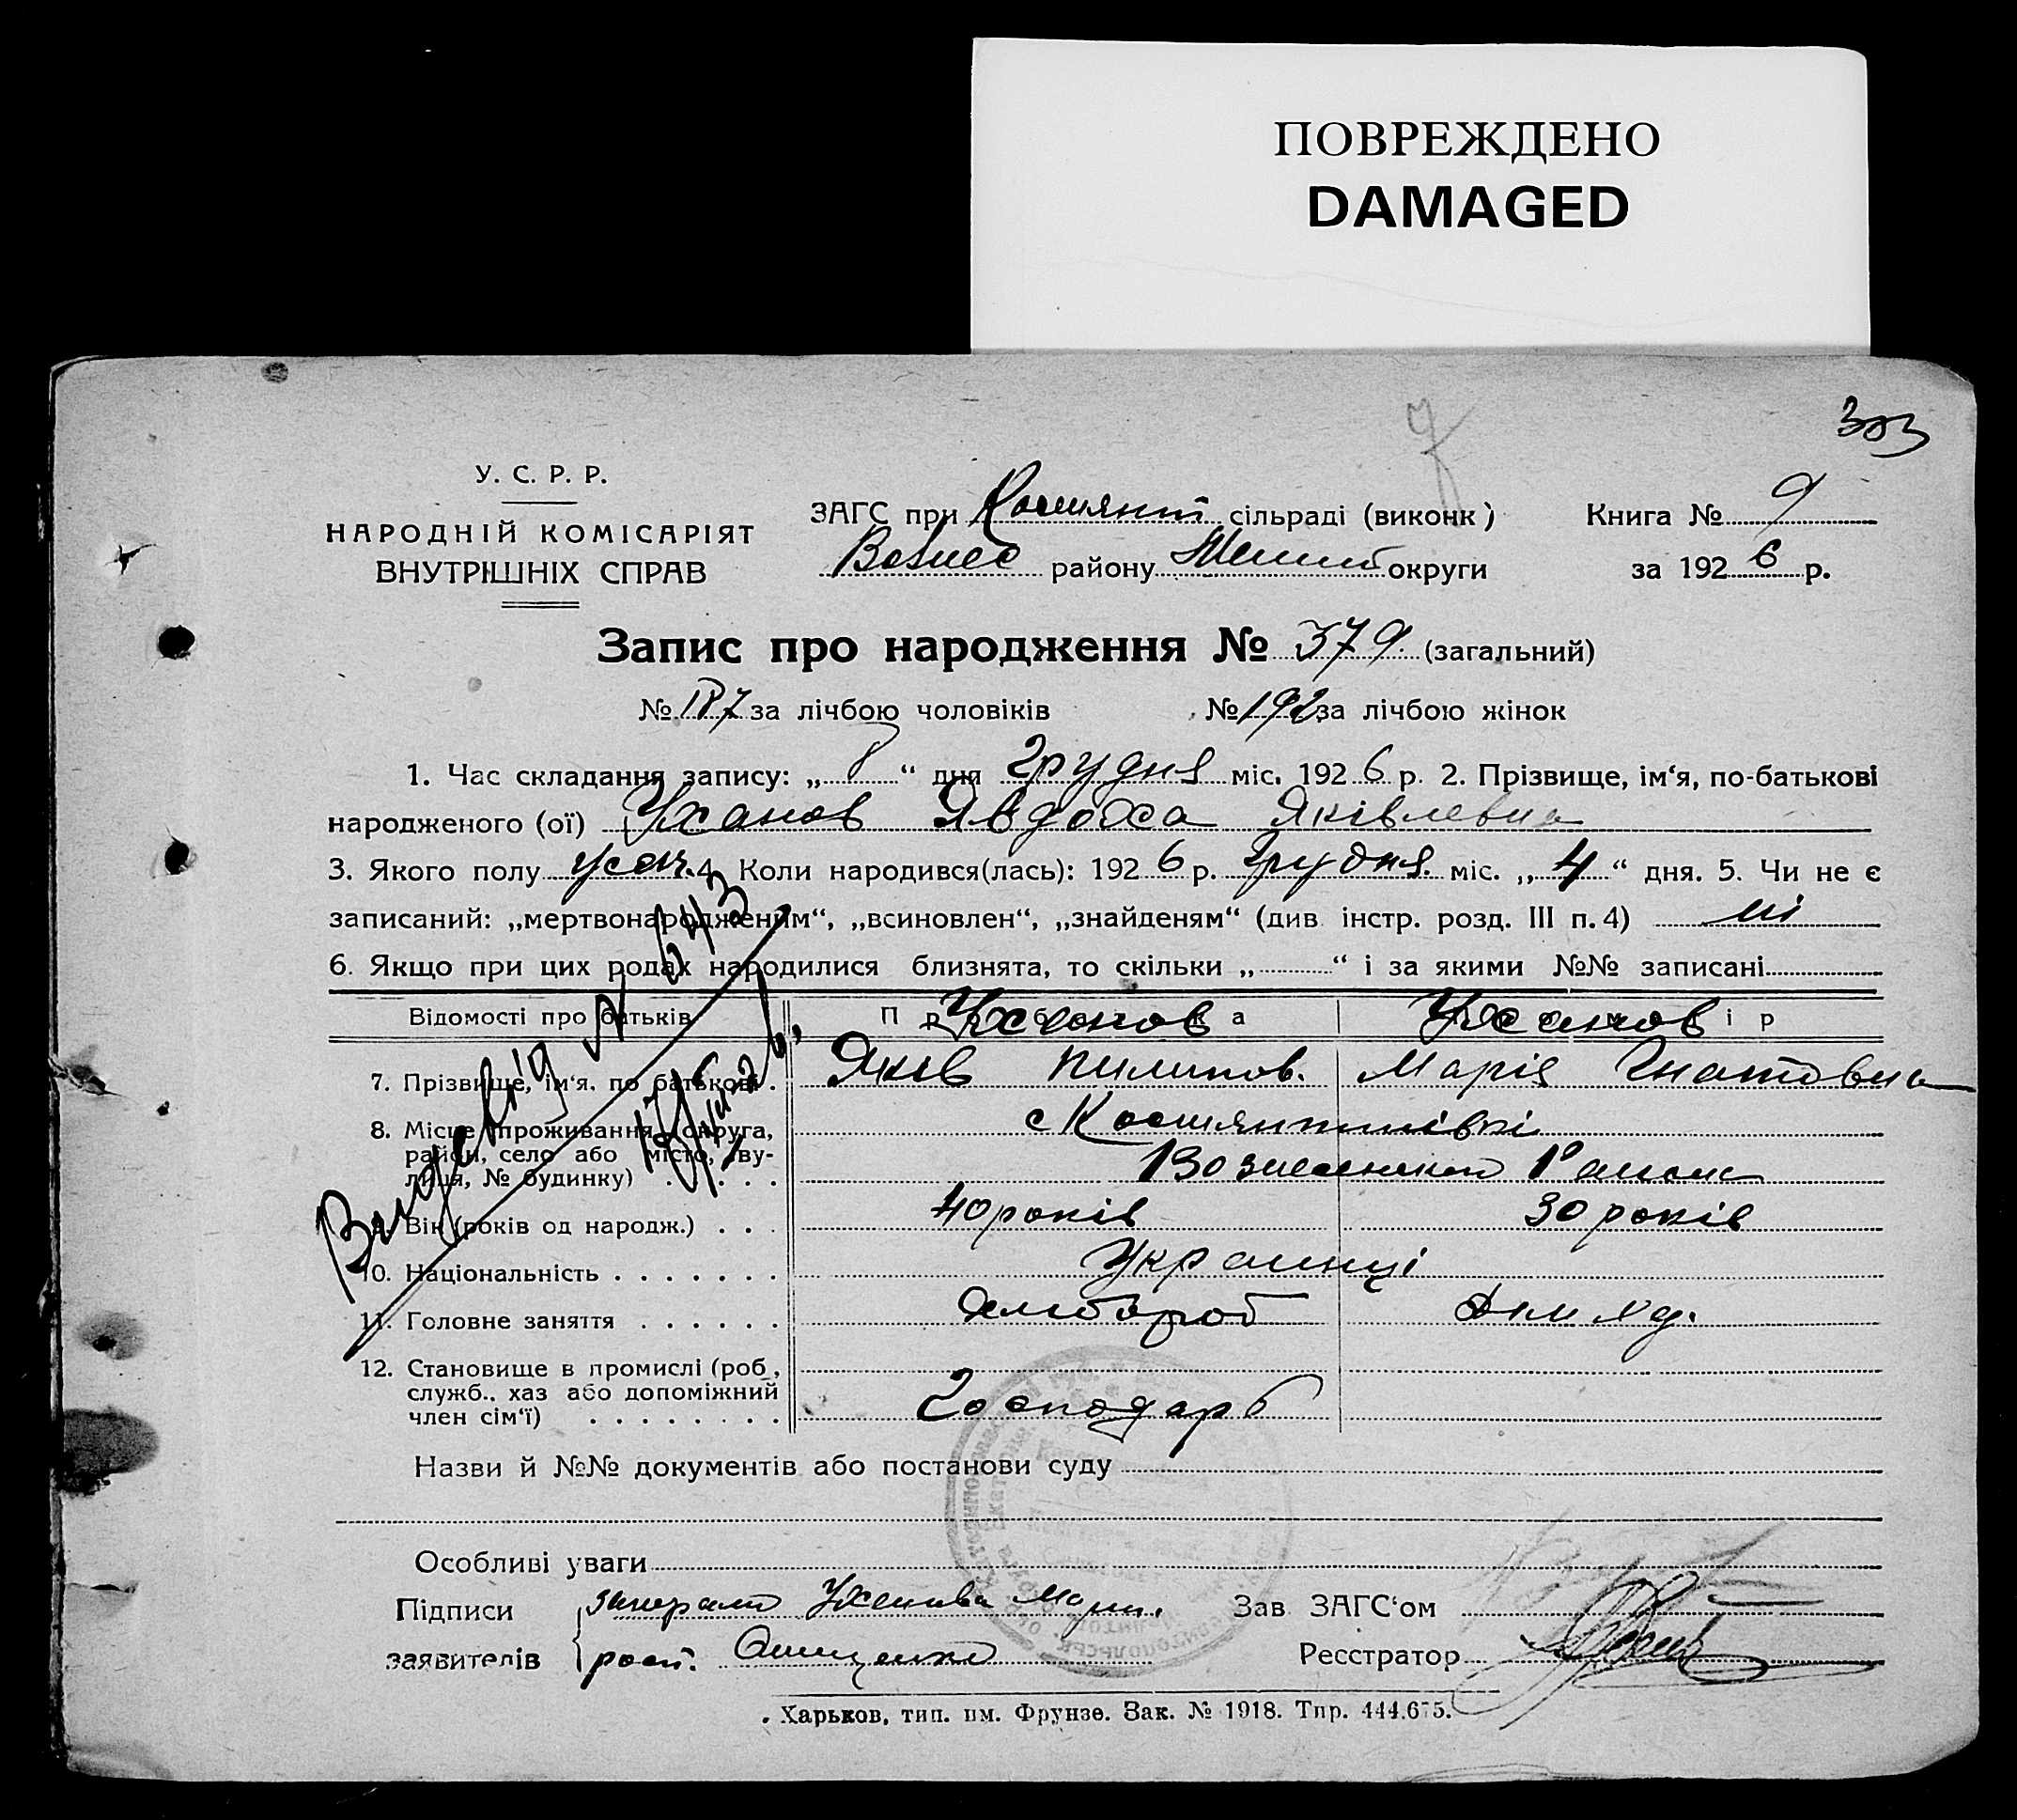 ПОВРЕЖДЕНО
DAMAGED
303
У. С. Р. Р.
НАРОДНІЙ КОМІСАРІЯТ
ВНУТРІШНІХ СПРАВ
ЗАГС при сільраді (виконк)
Вознес району округи
Книга № 9
за 1926 р.
Запис про народження № 379 (загальний)
№ 187 за лічбою чоловіків № 192 за лічбою жінок
1. Час складання запису: „ 8 “ дня Грудня міс. 1926 р. 2. Прізвище, ім‘я, по-батькові
народженого (ої) Уханов Явдоха Яківлевна
3. Якого полу 4. Коли народився(лась): 1926 р. Грудня міс. „ 4 “ дня. 5. Чи не є
записаний: „мертвонародженим“, „всиновлен“, „знайденям“ (див інстр. розд. III п. 4) ні
6. Якщо при цих родах народилися близнята, то скільки „ “ і за якими №№ записані
Відомості про батьків Уханов Уханов
7. Прізвище, ім‘я, по батькові Яків Пилипов. Марія Гнатовна
8. Місце проживання (округа,
район, село або місто, ву-
лиця, № будинку)
9. Вік (років од народж.) 40 років 30 років
10. Національність Украинці
11. Головне заняття Хлібороб
12. Становище в промислі (роб.,
служб., хаз або допоміжний
член сім‘ї) Господарь
Назви й №№ документів або постанови суду
Особливі уваги
Підписи Уханова Зав ЗАГС‘ом
заявителів Реєстратор
Харьков, тип. им. Фрунзе. Зак. № 1918. Тир. 444.675.